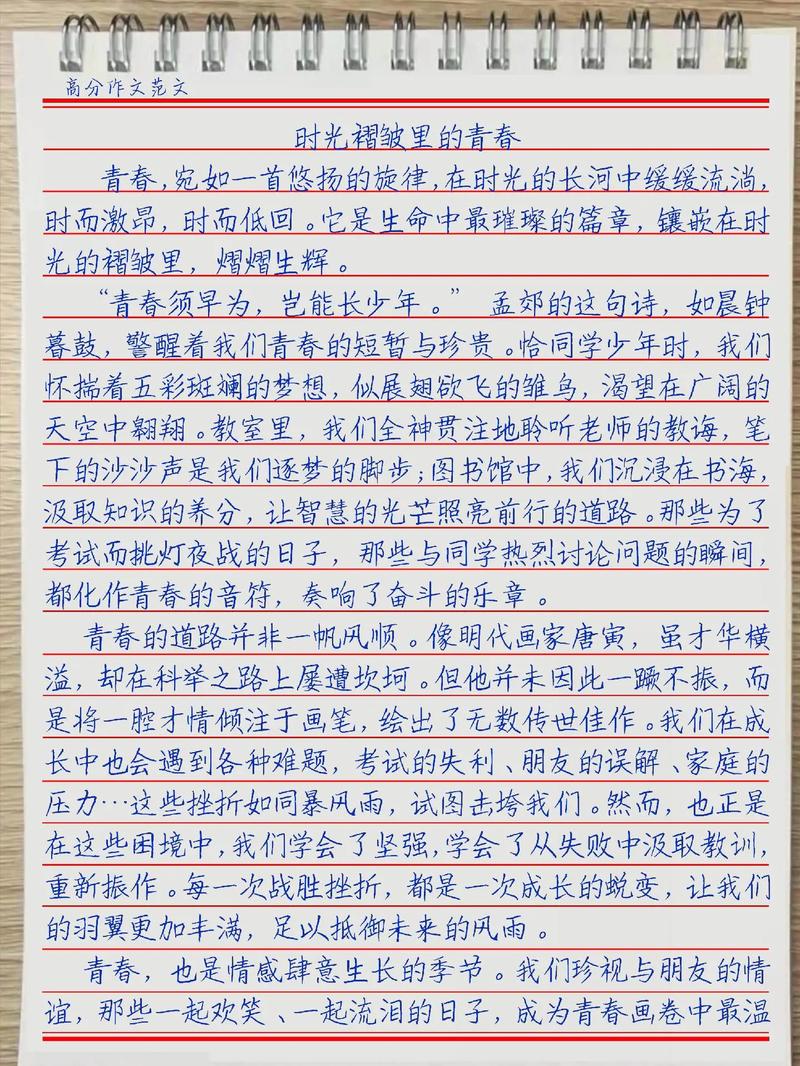 高分作文范文
时光褶皱里的青春
青春,宛如一首悠扬的旋律,在时光的长河中缓缓流淌,
时而激昂,时而低回。它是生命中最璀璨的篇章,镶嵌在时
光的褶皱里,熠熠生辉。
“青春须早为,岂能长少年。” 孟郊的这句诗,如晨钟
暮鼓,警醒着我们青春的短暂与珍贵。恰同学少年时,我们
怀揣着五彩斑斓的梦想,似展翅欲飞的雏鸟,渴望在广阔的
天空中翱翔。教室里,我们全神贯注地聆听老师的教诲,笔
下的沙沙声是我们逐梦的脚步;图书馆中,我们沉浸在书海,
汲取知识的养分,让智慧的光芒照亮前行的道路。那些为了
考试而挑灯夜战的日子,那些与同学热烈讨论问题的瞬间,
都化作青春的音符,奏响了奋斗的乐章。
青春的道路并非一帆风顺。像明代画家唐寅,虽才华横
溢,却在科举之路上屡遭坎坷。但他并未因此一蹶不振,而
是将一腔才情倾注于画笔,绘出了无数传世佳作。我们在成
长中也会遇到各种难题,考试的失利、朋友的误解、家庭的
压力…这些挫折如同暴风雨,试图击垮我们。然而,也正是
在这些困境中,我们学会了坚强,学会了从失败中汲取教训,
重新振作。每一次战胜挫折,都是一次成长的蜕变,让我们
的羽翼更加丰满,足以抵御未来的风雨。
青春,也是情感肆意生长的季节。我们珍视与朋友的情
谊,那些一起欢笑、一起流泪的日子,成为青春画卷中最温